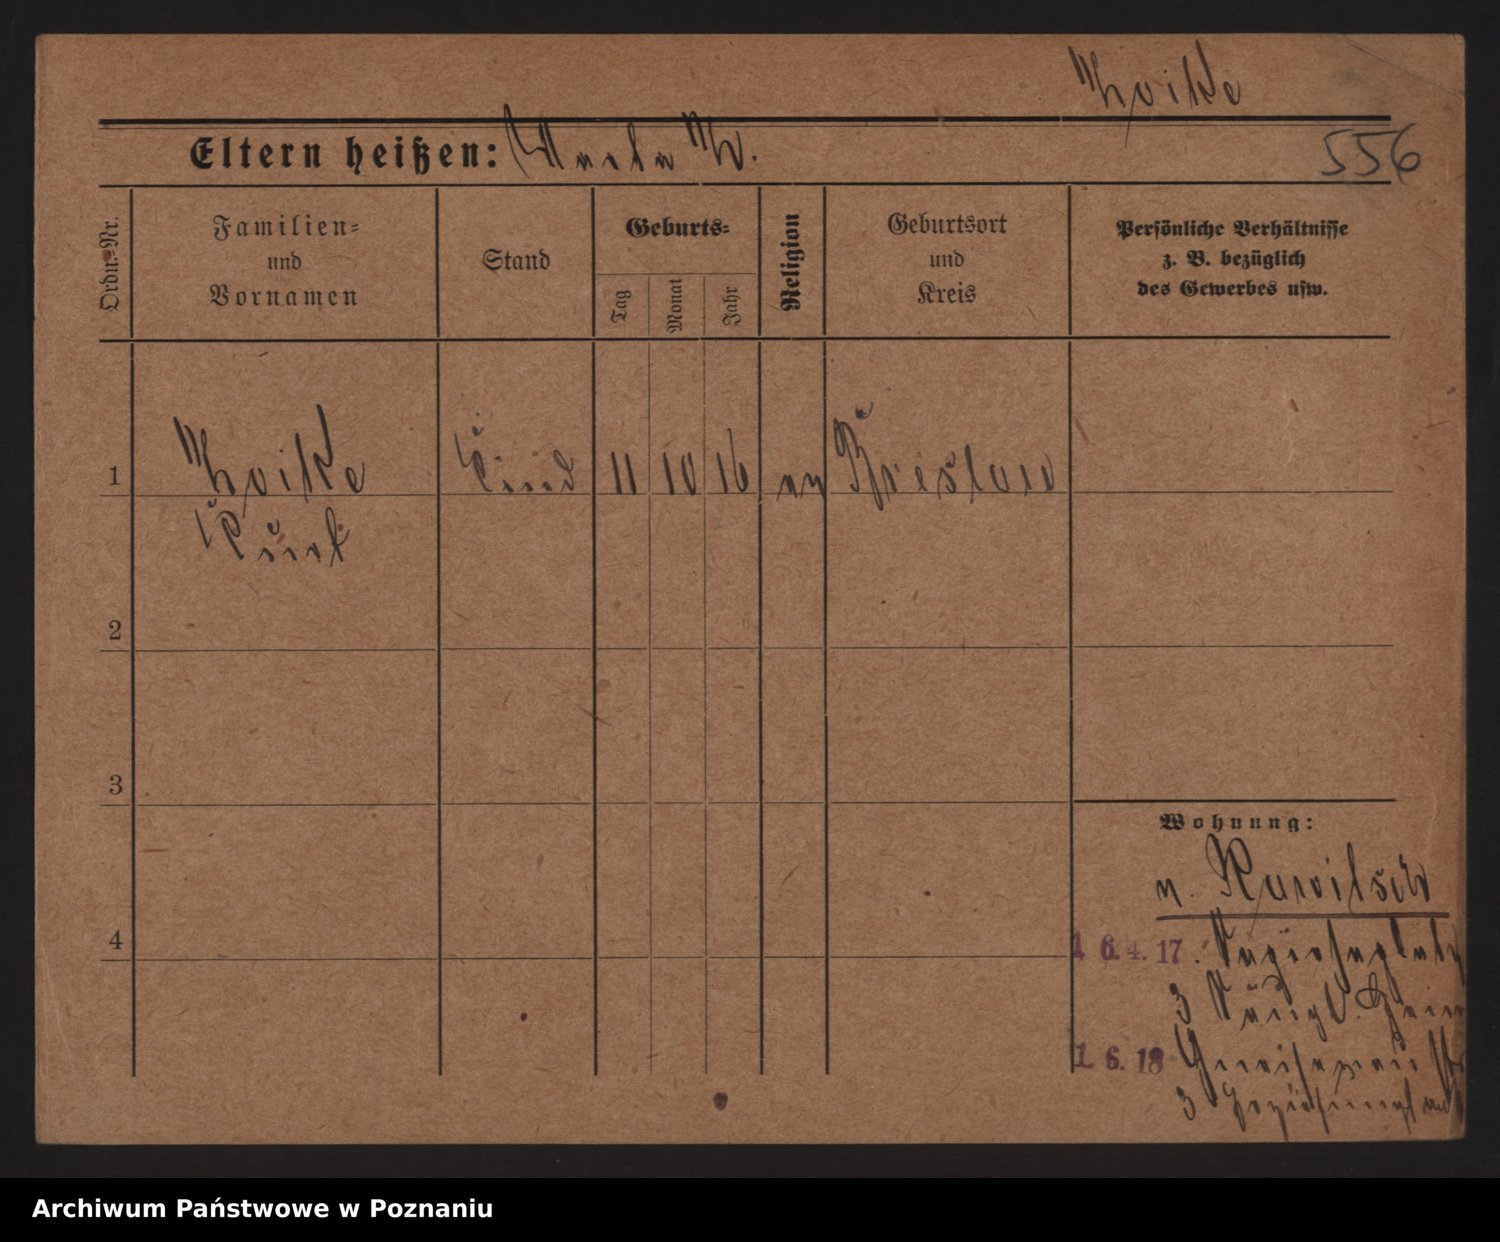 Woike
556
Eltern heißen: Martha W.
Ordn.-Nr.
Familien-
und
Vornamen
Stand
Geburts-
Tag
Monat
Jahr
Religion
Geburtsort
und
Kreis
Persönliche Verhältnisse
z. B. bezüglich
des Gewerbes usw.
1 Woike Kind 11 10 16 ev Breslau
Kurt
2
3
Wohnung:
v. Rawitsch
4
1 6.4.17.
3 Säugl. Heim
1. 6. 18 Gneisenau
3
Archiwum Państwowe w Poznaniu